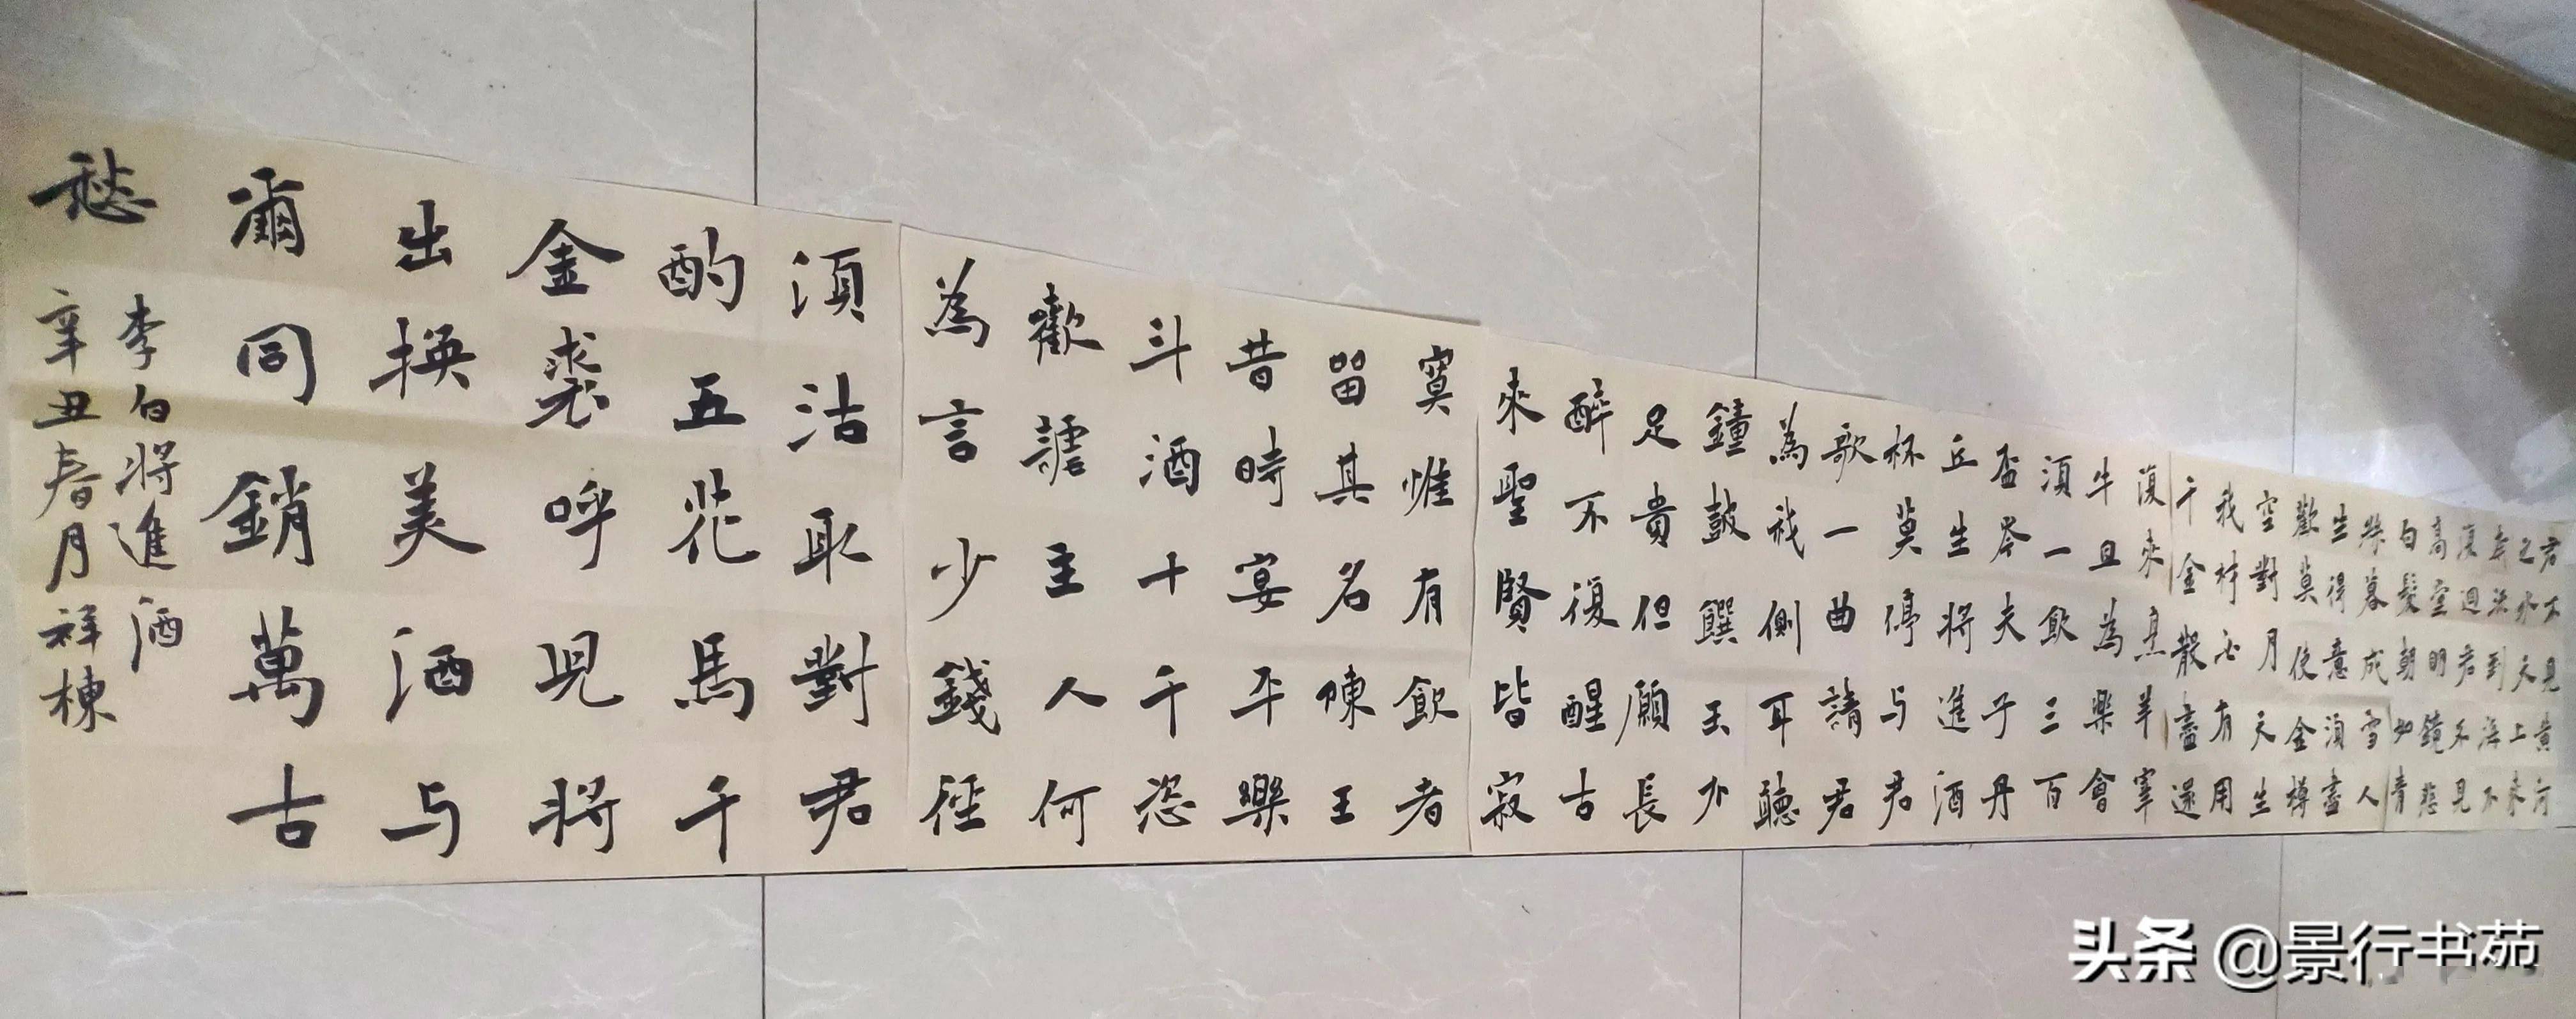 君不見黃河
之水天上來
奔流到海不
復迴君不見
高堂明鏡悲
白髮朝如青
絲暮成雪人
生得意須盡
歡莫使金樽
空對月天生
我材必有用
千金散盡還
復來烹羊宰
牛且為樂會
須一飲三百
盃岑夫子丹
丘生將進酒
杯莫停与君
歌一曲請君
為我側耳聽
鐘鼓饌玉不
足貴但願長
醉不復醒古
來聖賢皆寂
寞惟有飲者
留其名陳王
昔時宴平樂
斗酒十千恣
歡謔主人何
為言少錢徑
須沽取對君
酌五花馬千
金裘呼兒將
出換美酒与
爾同銷萬古
愁
李白將進酒
辛丑春月祥棟
头条 @景行书苑